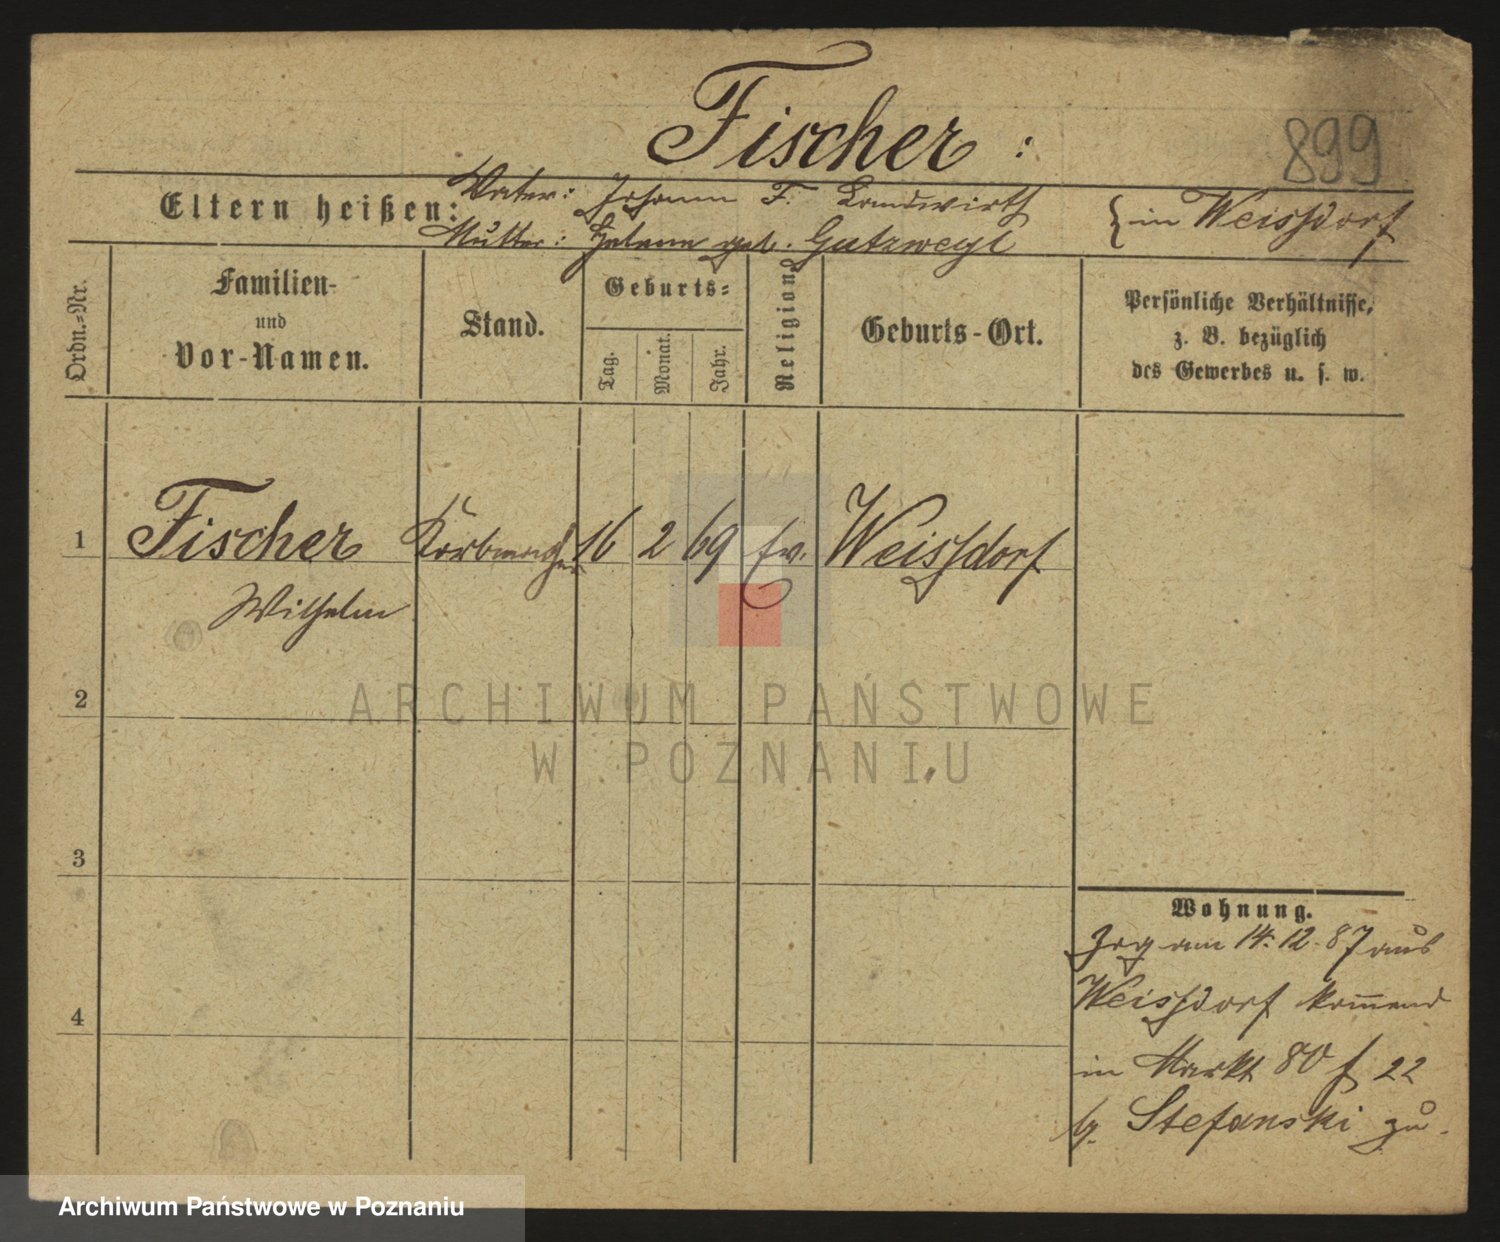 Fischer :
899
Eltern heißen: Vater: Johann F. Landwirth
Mutter: Helene geb. Gutzweyl } in Weissdorf
Ordn.-Nr.
Familien-
und
Vor-Namen.
Stand.
Geburts-
Tag.
Monat.
Jahr.
Religion
Geburts-Ort.
Persönliche Verhältnisse,
z. B. bezüglich
des Gewerbes u. s. w.
1 Fischer Korbmacher 16 2 69 ev. Weissdorf
Wilhelm
2
3
4
Wohnung.
Zog am 14.12.87 aus
Weissdorf kommend
in Markt 80 f 22
b. Stefanski zu.
ARCHIWUM PAŃSTWOWE
W POZNANIU
Archiwum Państwowe w Poznaniu